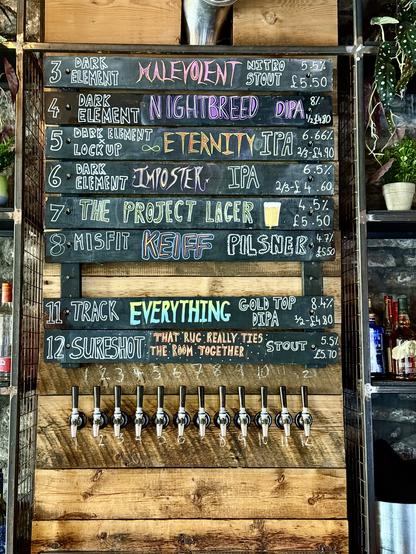 3 DARK ELEMENT MALEVOLENT NITRO STOUT 5.5% £5.50
4 DARK ELEMENT NIGHTBREED DIPA 8% ½ £4.80
5 DARK ELEMENT LOCK UP ∞ ETERNITY IPA 6.66% 2/3-£4.90
6 DARK ELEMENT IMPOSTER. IPA 6.5% 2/3-£4.60
7 THE PROJECT LAGER 4.5% £5.50
8 MISFIT KEIFF PILSNER 4.7% £5.50
11 TRACK EVERYTHING GOLD TOP DIPA 8.4% ½-£4.80
12 SURESHOT THAT RUG REALLY TIES THE ROOM TOGETHER STOUT 5.5% £5.70